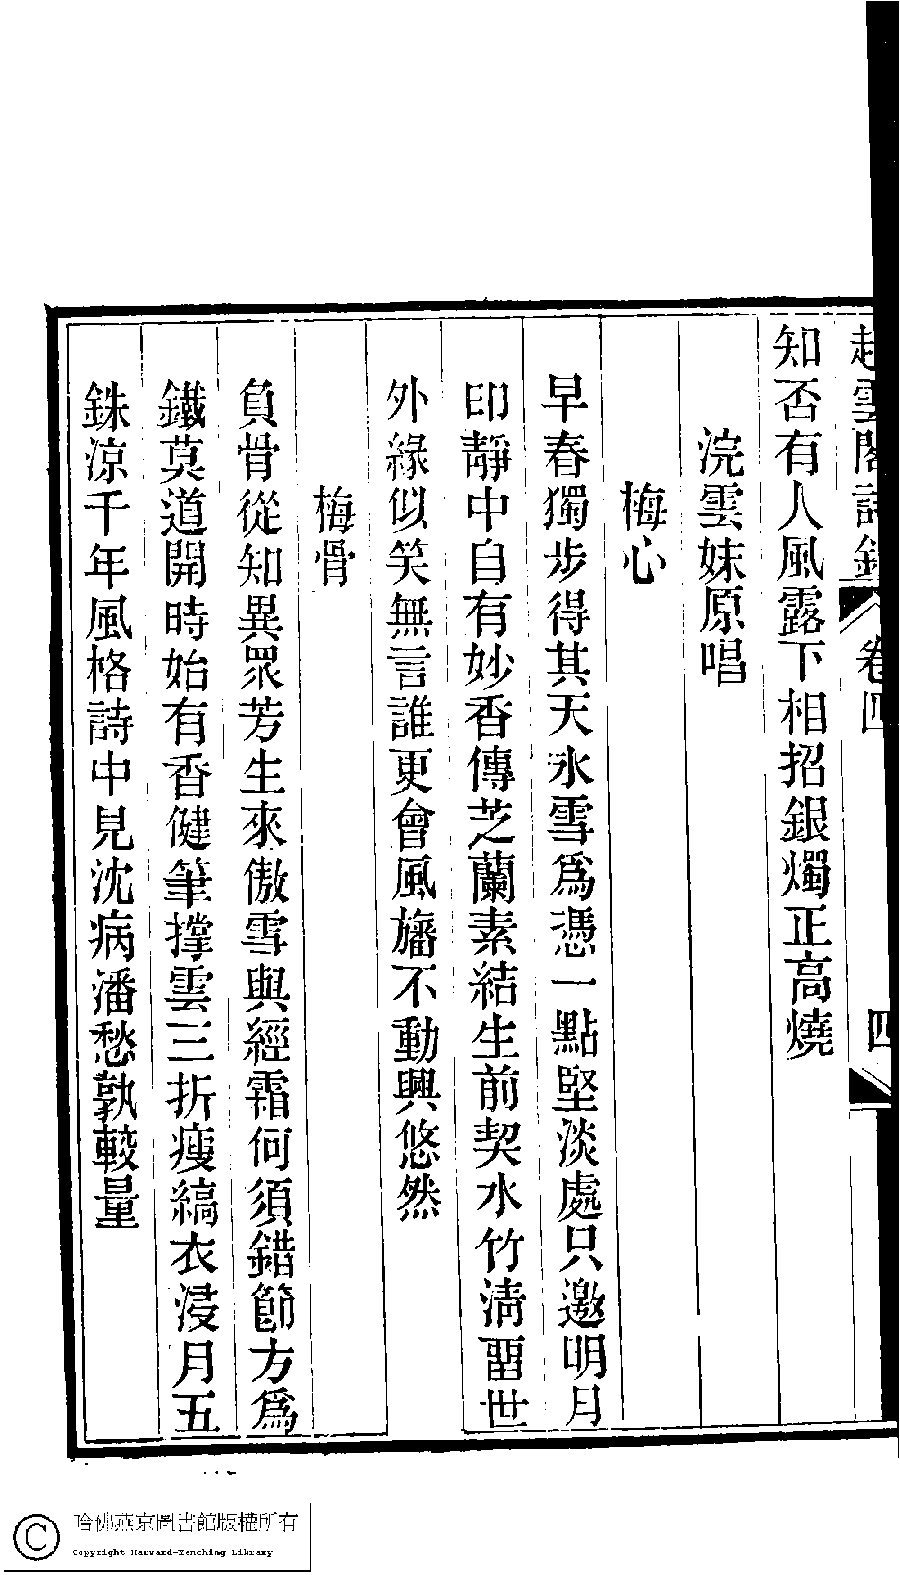 趁雲閣詩鈔 卷四 四
知否有人風露下相招銀燭正高燒
浣雲妹原唱
梅心
早春獨步得其天氷雪爲憑一點堅淡處只邀明月
印靜中自有妙香傳芝蘭素結生前契水竹淸畱世
外緣似笑無言誰更會風旛不動興悠然
梅骨
負骨從知異眾芳生來傲雪與經霜何須錯節方爲
鐵莫道開時始有香健筆撑雲三折瘦縞衣浸月五
銖凉千年風格詩中見沈病潘愁孰較量
哈佛燕京圖書館版權所有
Copyright Harvard-Yenching Library